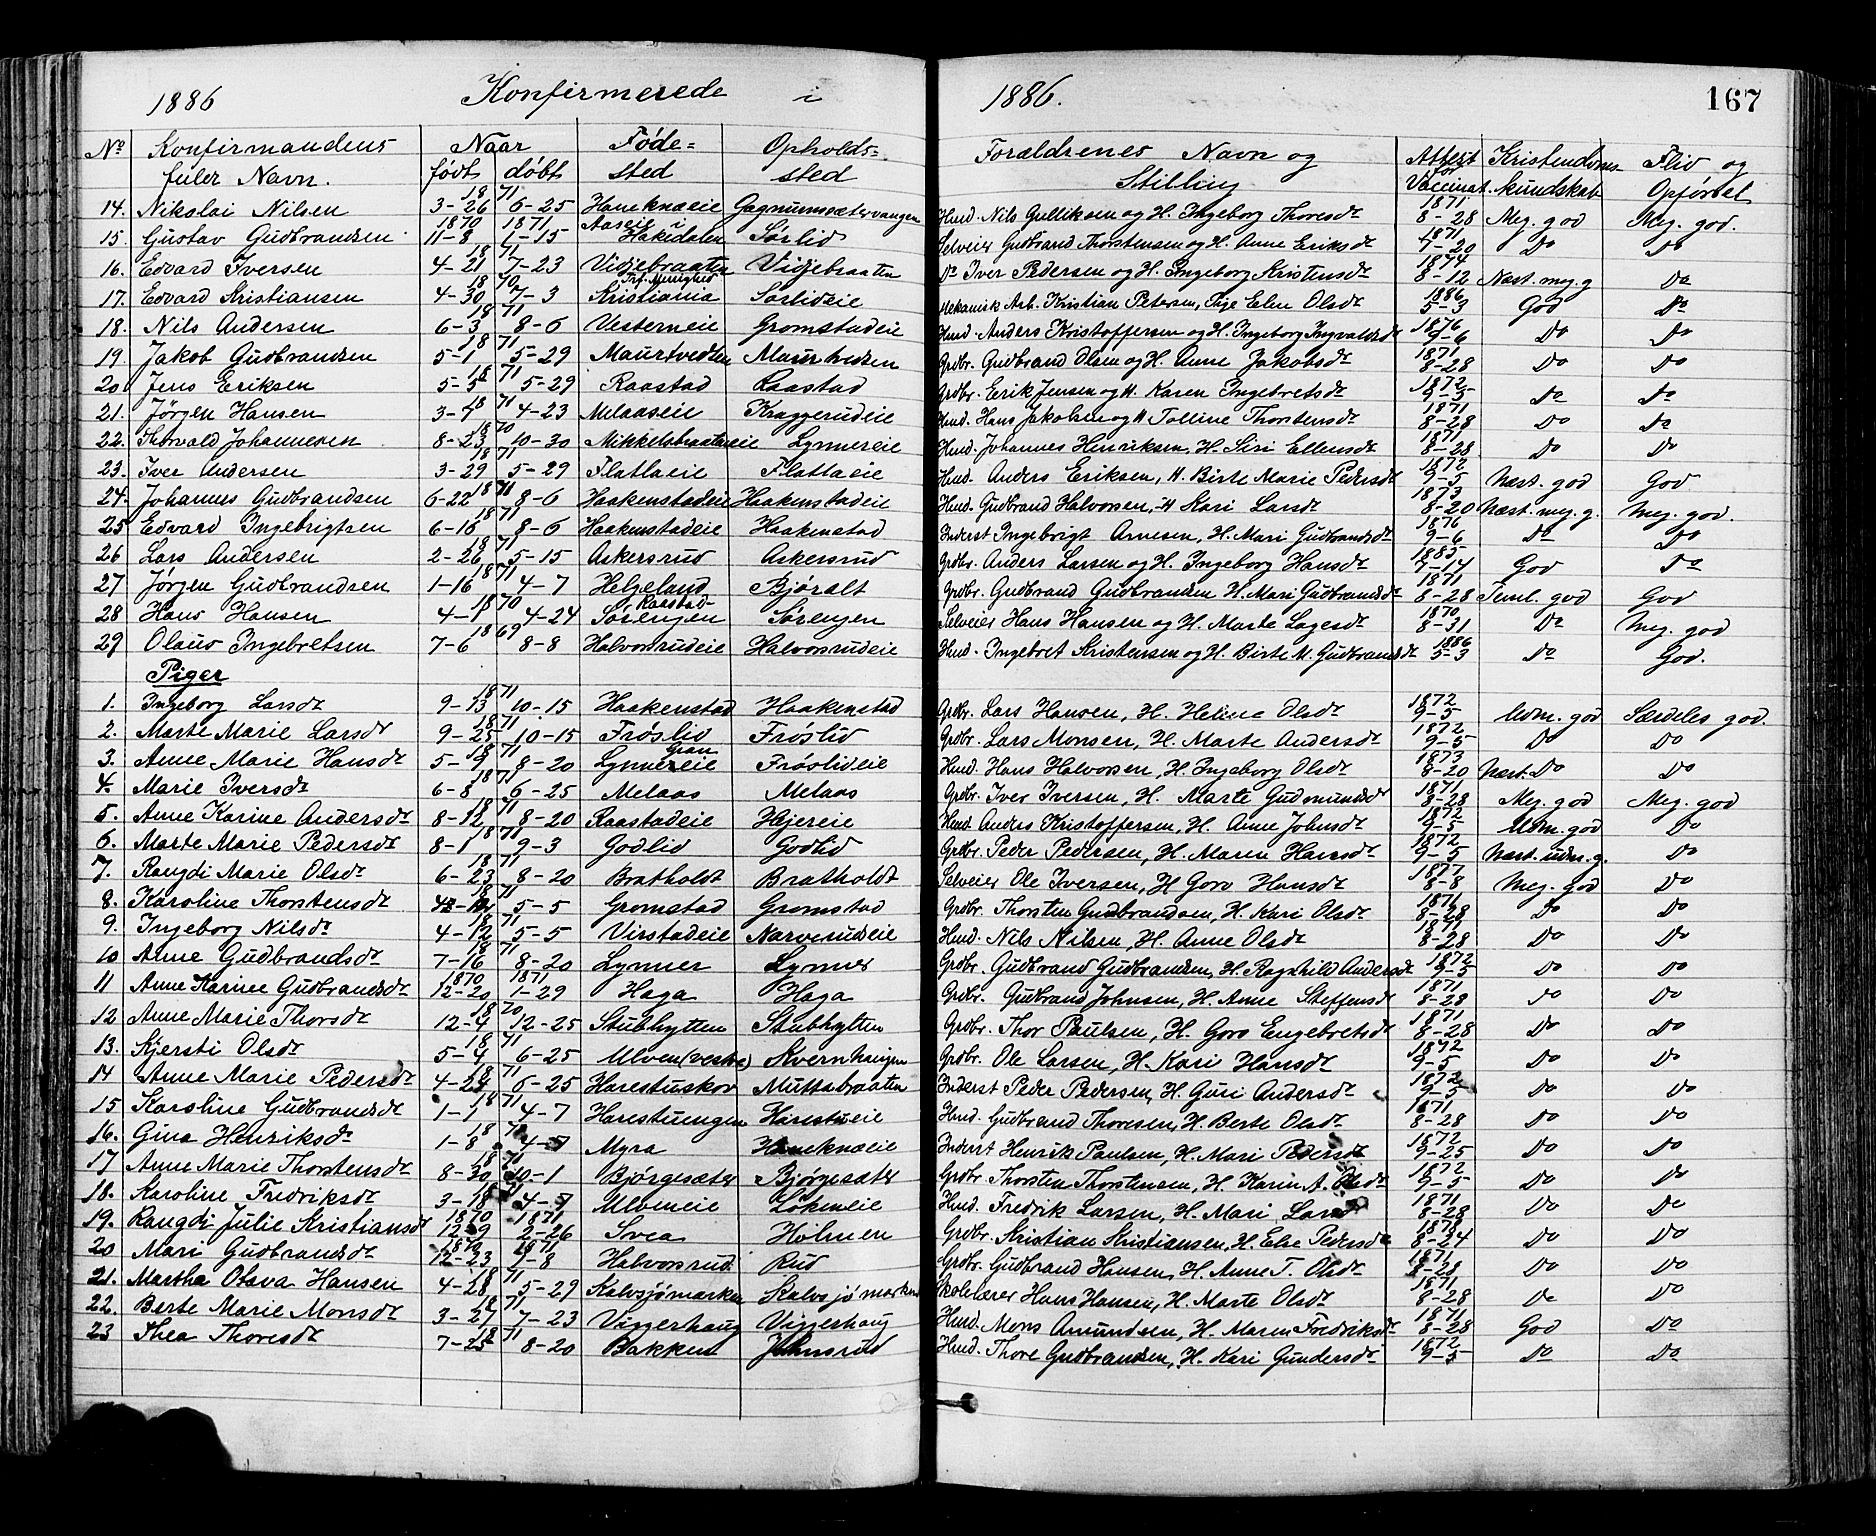 1886 Konfirmerede i 1886. 167
No Konfirmandens Naar Føde= Opholds= Forældrenes Navn og Attest Kristendoms Flid og
fulde Navn. født døbt sted sted Stilling for Vaccinat. kundskab Opførsel
14. Nikolai Nilsen 3-26 1871 6-25 Haneknæeie Gagnumsætervangen Husd. Nils Gulliksen og H. Ingeborg Thoresdt 1871 8-28 Meg. god Meg. god.
15. Gustav Gudbrandsen 1870 11-8 1871 1-15 Aaseie i Hakedalen Sørlid Selveier Gudbrand Thorstensen og H. Anne Eriksdt 1871 9-20 Do Do
16. Edvard Iversen 4-21 1871 7-23 Vidjebraaten Vidjebraaten Do Iver Pedersen og H. Ingeborg Kristensdt 1874 8-12 Næst. meg. g Do
17. Edvard Kristiansen 4-30 1870 7-3 Trf. Menighed Kristiania Sørlideie Mekanisk Arb. Kristian Petersen, Pige Elen Olsdt 1886 5-3 God Do
18. Nils Andersen 6-3 1871 8-6 Vesterneie Gromstadeie Husd. Anders Kristoffersen og H. Ingeborg Ingvaldsdt 1876 9-6 Do Do
19. Jakob Gudbrandsen 5-1 1871 5-29 Maurtvedten Maurtvedten Grdbr. Gudbrand Olsen og H. Anne Jakobsdt 1871 8-28 Do Do
20. Jens Eriksen 5-5 1871 5-29 Raastad Raastad Grdbr. Erik Jensen og H. Karen Ingebretsdt 1872 9-5 Do Do
21. Jørgen Hansen 3-7 1871 4-23 Melaaseie Kraggerudeie Husd. Hans Jakobsen og H Tolline Thorstensdt 1871 8-28 Do Do
22. Thorvald Johannesen 8-23 1870 10-30 Mikkelsbraateneie Lynnereie Husd. Johannes Henriksen, H. Siri Ellensdt 1871 8-28 Do Do
23. Iver Andersen 3-29 1871 5-29 Flatlaeie Flatlaeie Husd. Anders Eriksen, H. Birte Marie Pedersdt 1872 9-5 Næst. god God
24. Johannes Gudbrandsen 6-22 1871 8-6 Haakenstadeie Haakenstadeie Husd. Gudbrand Halvorsen, H Kari Larsdt 1873 8-20 Næst. meg. g. Meg. god.
25 Edvard Ingebrigtsen 6-16 1871 8-6 Haakenstadeie Haakenstad Inderst Ingebrigt Arnesen, H. Mari Gudbrandsdt 1876 9-6 Do Do
26 Lars Andersen 2-26 1871 5-15 Askersrud Askersrud Grdbr. Anders Larsen og H. Ingeborg Hansdt 1885 7-14 God Do
27 Jørgen Gudbrandsen 1-16 1871 4-7 Helgeland Bjøralt Grdbr. Gudbrand Gudbrandsen H. Mari Gudbrandsdt 1871 8-28 Teml. god God
28 Hans Hansen 4-1 1870 4-24 Raastad- Sørengen Sørengen Selveier Hans Hansen og H. Marte Lagesdt 1870 8-31 Do Meg. god
29 Olaus Ingebretsen 7-6 1869 8-8 Halvorsrudeie Halvorsrudeie Husd. Ingebret Kristensen og H. Birte M. Gudbrandsdt 1886 5-3 Do God.
Piger
1. Ingeborg Larsdt 9-13 1871 10-15 Haakenstad Haakenstad Grdbr. Lars Hansen, H. Helene Olsdt 1872 9-5 Udm. god Særdeles god.
2. Marte Marie Larsdt 9-25 1871 10-15 Frøslid Frøslid Grdbr. Lars Monsen, H. Marte Andersdt 1872 9-5 Do Do
3. Anne Marie Hansdt 5-9 1871 8-20 Gran Lynnereie Frøslideie Husd. Hans Halvorsen, H. Ingeborg Olsdt 1873 8-20 Næst. Do Do
4. Marie Iversdt 6-8 1871 6-25 Melaas Melaas Grdbr. Iver Iversen, H. Marte Gudmundsdt 1871 8-28 Meg. god Meg. god
5. Anne Karine Andersdt 8-12 1871 8-20 Raastadeie Hejereie Husd. Anders Kristoffersen, H. Anne Johnsdt 1872 9-5 Udm. god Do
6. Marte Marie Pedersdt 8-1 1871 9-3 Godlid Godlid Grdbr. Peder Pedersen, H. Maren Hansdt 1872 9-5 Næst. udm. g. Do
7. Rangdi Marie Olsdt 6-23 1871 8-20 Bratholdt Bratholdt Selveier Ole Iversen, H Goro Hansdt 1877 8-8 Meg. god Do
8. Karoline Thorstensdt 1871 5-5 Gromstad Gromstad Grdbr. Thorsten Gudbrandsen, H. Kari Olsdt 1871 8-28 Do Do
9. Ingeborg Nilsdt 4-12 1871 5-5 Virstadeie Narverudeie Husd. Nils Nilsen, H. Anne Olsdt 1871 8-28 Do Do
10 Anne Gudbrandsdt 7-16 1871 8-20 Lynner Lynner Grdbr. Gudbrand Gudbrandsen, H. Ragnhild Andersdt 1872 9-5 Do Do
11 Anne Karine Gudbrandsdt 1870 12-20 1871 1-29 Haga Haga Grdbr. Gudbrand Johnsen, H. Anne Steffensdt 1871 8-28 Do Do
12 Anne Marie Thorsdt 12-4 1870 12-25 Stubhytten Stubhytten Grdbr. Thor Paulsen, H. Goro Engebretsdt 1871 8-28 Do Do
13. Kjersti Olsdt 5-4 1871 6-25 Ulven (vestre) Kvernhaugen Grdbr. Ole Larsen, H. Kari Hansdt 1872 9-5 Do Do
14 Anne Marie Pedersdt 4-24 1871 6-25 Harestuskov Muttabraaten Inderst Peder Pedersen, H. Guri Andersdt 1872 9-5 Do Do
15 Karoline Gudbrandsdt 1-1 1871 4-7 Harestuengen Harestueie Husd. Gudbrand Thoresen, H. Berte Olsdt 1871 8-28 Do Do
16. Gina Henriksdt 1-8 4-7 Myra Haneknæeie Inderst Henrik Paulsen, H. Mari Pedersdt 1872 9-25 Do Do
17 Anne Marie Thorstensdt 8-30 1871 10-1 Bjørgesæter Bjørgesæter Grdbr. Thorsten Thorstensen, H. Karin A. Olsdt 1872 9-5 Do Do
18. Karoline Fredriksdt 3-18 4-7 Ulveneie Løkeneie Husd. Fredrik Larsen, H. Mari Larsdt 1871 8-28 Do Do
19. Rangdi Julie Kristiansdt 1870 12-9 1871 2-26 Svea Holmen Grdbr. Kristian Kristiansen, H. Else Pedersdt 1878 8-24 Do Do
20 Mari Gudbrandsdt 1870 12-23 1871 1-8 Halvorsrud. Rud Grdbr. Gudbrand Hansen, H. Anne T. Olsdt 1871 8-28 Do Do
21. Martha Otava Hansen 4-28 1871 5-29 Kalvsjømarken Kalvsjømarken Skolelærer Hans Hansen, H. Marte Olsdt 1871 8-28 Do Do
22. Berte Marie Monsdt 3-27 1871 7-23 Viggerhaug Viggerhaug Husd. Mons Amundsen, H. Maren Fredriksdt 1871 8-28 God Do
23 Thea Thoresdt 7-25 1871 8-20 Bakken Johnsrud Husd. Thore Gudbrandsen, H. Kari Gundersdt 1872 9-5 Do Do